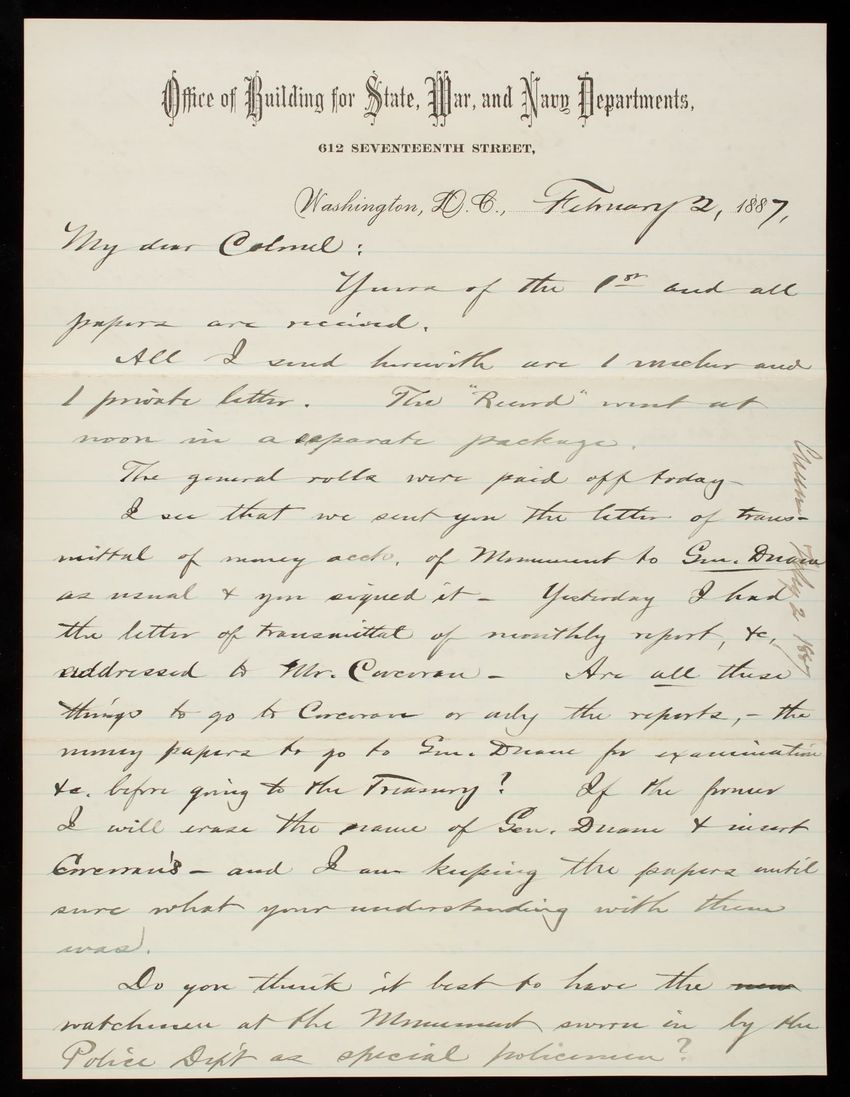 Office of Building for State, War, and Navy Departments,
612 SEVENTEENTH STREET,
Washington, D.C., February 2, 1887,
My dear Colonel:
Yours of the 1st and all
papers are received.
All I send herewith are 1 voucher and
1 private letter. The "Record" went at
noon in a separate package.
The general rolls were paid off today—
I see that we sent you the letter of trans-
mittal of money accts. of Monument to Gen. Duane
as usual & you signed it — Yesterday I had
the letter of transmittal of monthly report, &c,
addressed to Mr. Corcoran — Are all these
things to go to Corcoran or only the reports, — the
money papers to go to Gen. Duane for examination
&c. before going to the Treasury? If the former
I will erase the name of Gen. Duane & insert
Corcoran's — and I am keeping the papers until
sure what your understanding with them
was).
Do you think it best to have the
watchmen at the Monument sworn in by the
Police Dep't as special policemen?
Feby 2 1887